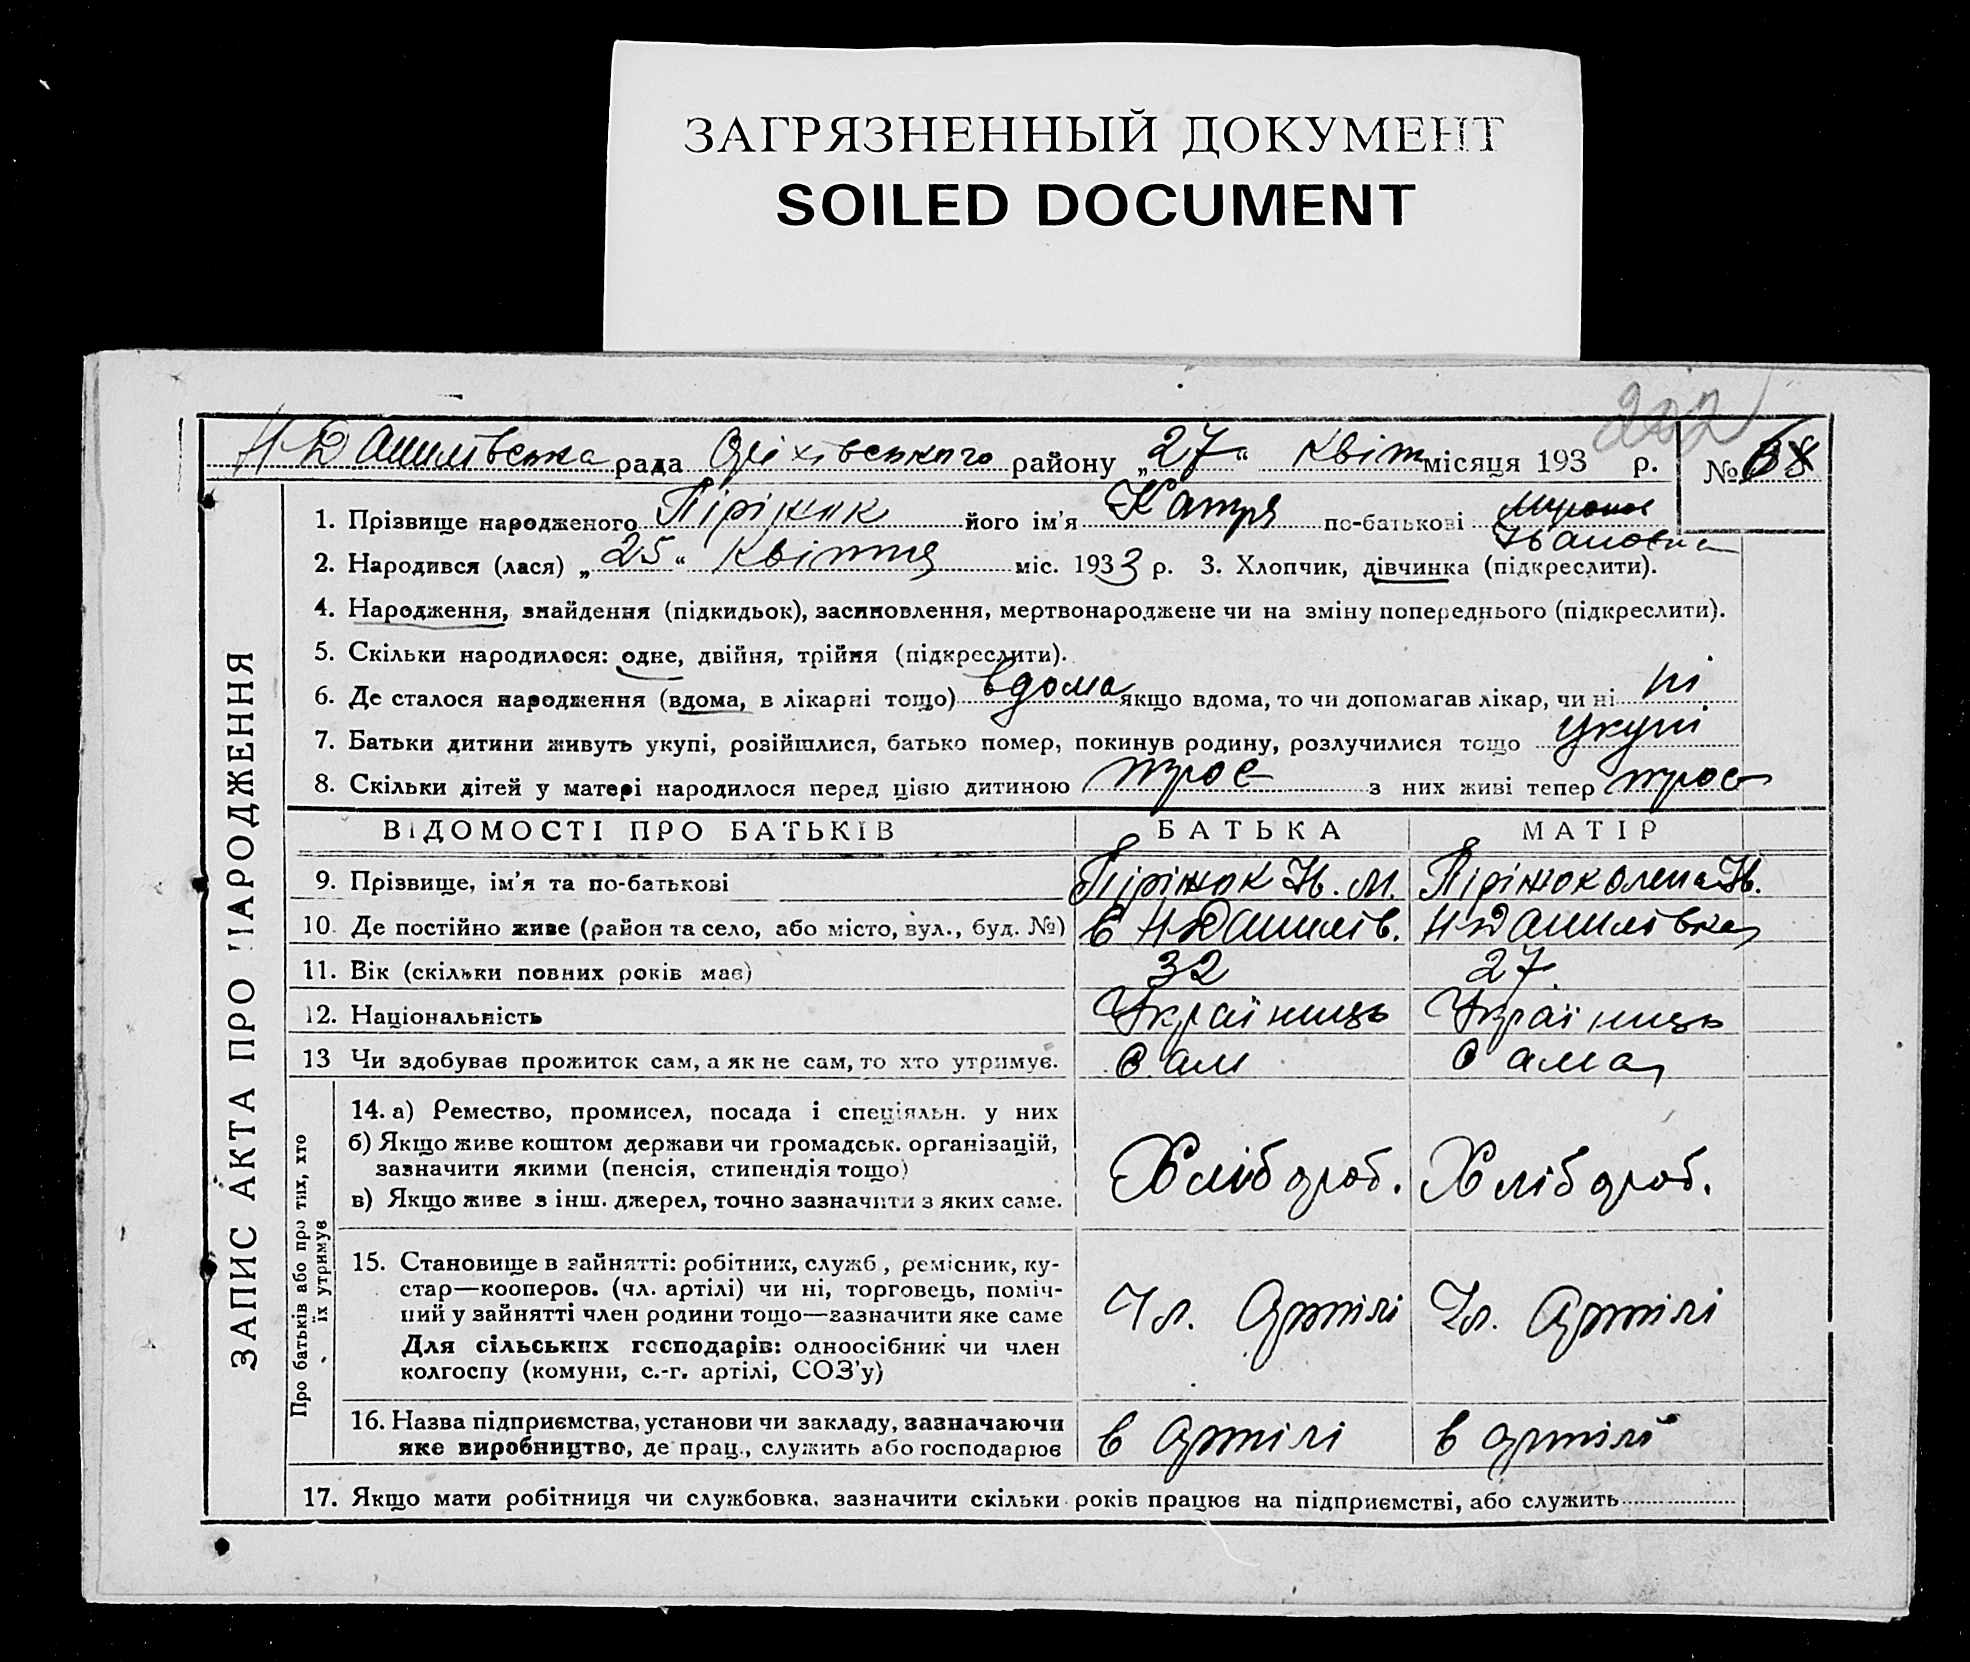 ЗАГРЯЗНЕННЫЙ ДОКУМЕНТ
SOILED DOCUMENT
202
Н-Данилівська рада Оріхівського району „27“ Квіт місяця 193 р. №
1. Прізвище народженого Пиріжок його ім'я Катря по-батькові Івановна
2. Народився (лася) „25“ Квітня міс. 1933 р. 3. Хлопчик, дівчинка (підкреслити).
4. Народження, знайдення (підкидьок), засиновлення, мертвонароджене чи на зміну попереднього (підкреслити).
5. Скільки народилося: одне, двійня, трійня (підкреслити).
6. Де сталося народження (вдома, в лікарні тощо) вдома якщо вдома, то чи допомагав лікар, чи ні ні
7. Батьки дитини живуть укупі, розійшлися, батько помер, покинув родину, розлучилися тощо укупі
8. Скільки дітей у матері народилося перед цією дитиною троє з них живі тепер троє
ЗАПИС АКТА ПРО НАРОДЖЕННЯ
ВІДОМОСТІ ПРО БАТЬКІВ БАТЬКА МАТІР
9. Прізвище, ім'я та по-батькові Піріжок Ів. М. Піріжок Олена Ів.
10. Де постійно живе (район та село, або місто, вул., буд. №) в Н-Данилів. Н-Данилівка
11. Вік (скільки повних років має) 32 27
12. Національність Україниць Україниць
13 Чи здобував прожиток сам, а як не сам, то хто утримує. Сам Сама
Про батьків або про тих, хто їх утримує
14. а) Ремество, промисел, посада і спеціяльн. у них
б) Якщо живе коштом держави чи громадськ. організацій,
зазначити якими (пенсія, стипендія тощо) Хлібороб. Хлібороб.
в) Якщо живе з інш. джерел, точно зазначити з яких саме.
15. Становище в зайнятті: робітник, служб., ремісник, ку-
стар—кооперов. (чл. артілі) чи ні, торговець, поміч-
ний у зайнятті член родини тощо—зазначити яке саме Чл. Артілі Чл. Артілі
Для сільських господарів: одноосібник чи член
колгоспу (комуни, с.-г. артілі, СОЗ'у)
16. Назва підприємства, установи чи закладу, зазначаючи
яке виробництво, де прац., служить або господарює в Артілі в артілі
17. Якщо мати робітниця чи службовка, зазначити скільки років працює на підприємстві, або служить